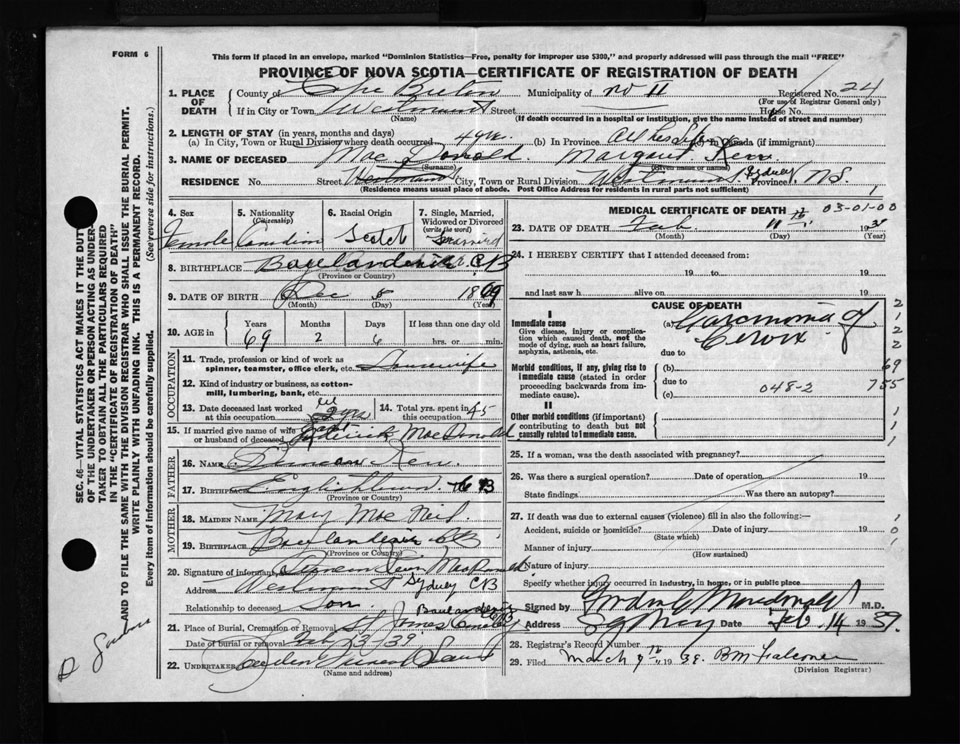 FORM 6
This form if placed in an envelope, marked "Dominion Statistics—Free, penalty for improper use $300," and properly addressed will pass through the mail "FREE"
PROVINCE OF NOVA SCOTIA—CERTIFICATE OF REGISTRATION OF DEATH
SEC. 46—VITAL STATISTICS ACT MAKES IT THE DUTY
OF THE UNDERTAKER OR PERSON ACTING AS UNDER-
TAKER TO OBTAIN ALL THE PARTICULARS REQUIRED
IN THE "CERTIFICATE OF REGISTRATION OF DEATH"
AND TO FILE THE SAME WITH THE DIVISION REGISTRAR WHO SHALL ISSUE THE BURIAL PERMIT.
WRITE PLAINLY WITH UNFADING INK. THIS IS A PERMANENT RECORD.
Every item of information should be carefully supplied. (See reverse side for instructions.)
1. PLACE OF DEATH
County of Cape Breton Municipality of No 11 Registered No. 24
(For use of Registrar General only)
If in City or Town Westmount Street House No.
(Name) (If death occurred in a hospital or institution, give the name instead of street and number)
2. LENGTH OF STAY (in years, months and days)
(a) In City, Town or Rural Division where death occurred 4 yrs. (b) In Province All her life (c) In Canada (if immigrant)
3. NAME OF DECEASED MacDonald Margaret Kerr
(Surname) (Given name or names)
RESIDENCE No. Street Westmount City, Town or Rural Division Westmount, Sydney Province N.S.
(Residence means usual place of abode. Post Office Address for residents in rural parts not sufficient)
1
4. Sex Female
5. Nationality (Citizenship) Canadian
6. Racial Origin Scotch
7. Single, Married, Widowed or Divorced (write the word) Married
8. BIRTHPLACE C.B
(Province or Country)
9. DATE OF BIRTH Dec 8 1869
(Month) (Day) (Year)
10. AGE in Years Months Days If less than one day old
69 2 6 hrs. or min.
OCCUPATION
11. Trade, profession or kind of work as spinner, teamster, office clerk, etc. Housewife
12. Kind of industry or business, as cotton-mill, lumbering, bank, etc.
13. Date deceased last worked at this occupation 2 yrs
14. Total yrs. spent in 45
15. If married give name of wife or husband of deceased Roderick MacDonald
FATHER
16. Name Kerr
17. Birthplace Englishtown C B
(Province or Country)
MOTHER
18. MAIDEN NAME Mary MacNeil
19. Birthplace C B
(Province or Country)
20. Signature of informant MacDonald
Address Westmount Sydney CB
Relationship to deceased Son
21. Place of Burial, Cremation or Removal St James
Date of burial or removal Feb
22. UNDERTAKER
(Name and address)
MEDICAL CERTIFICATE OF DEATH 03-01-00
23. DATE OF DEATH Feb. 193
(Month) (Day) (Year)
24. I HEREBY CERTIFY that I attended deceased from:
19 to 19
and last saw h alive on 19
CAUSE OF DEATH
I
Immediate cause
Give disease, injury or complication which caused death, not the mode of dying, such as heart failure, asphyxia, asthenia, etc.
(a) Carcinoma of
Cervix
due to
Morbid conditions, if any, giving rise to immediate cause (stated in order proceeding backwards from immediate cause).
(b)
due to 048-2
(c)
II
Other morbid conditions (if important) contributing to death but not causally related to immediate cause.
2
1
2
2
69
755
1
1
1
25. If a woman, was the death associated with pregnancy?
26. Was there a surgical operation? Date of operation 19
State findings Was there an autopsy?
27. If death was due to external causes (violence) fill in also the following:—
Accident, suicide or homicide? Date of injury 19
(State which)
Manner of injury
(How sustained)
Nature of injury
Specify whether injury occurred in industry, in home, or in public place
1
0
1
Signed by Macdonald M.D.
Address Sydney Feb. 14 1939.
28. Registrar's Record Number
29. Filed March 9th 1939. B M Falconer
(Division Registrar)